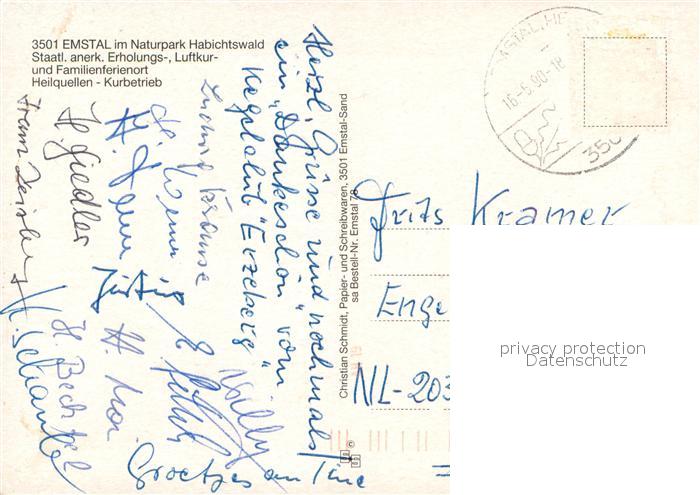 3501 EMSTAL im Naturpark Habichtswald
Staatl. anerk. Erholungs-, Luftkur-
und Familienferienort
Heilquellen - Kurbetrieb
Herzl. Grüsse und nochmals
ein "Dankeschön" vom
Kegelclub "Erzeberg"
Ludwig Krause
H. Giedler
H. Bechtel
Willy
Groetjes an Tine
Christian Schmidt, Papier- und Schreibwaren, 3501 Emstal-Sand
sa Bestell-Nr. Emstal 78
EMSTAL, HE
16-5.90-18
350
Frits Kramer
Enge
NL-203
privacy protection
Datenschutz